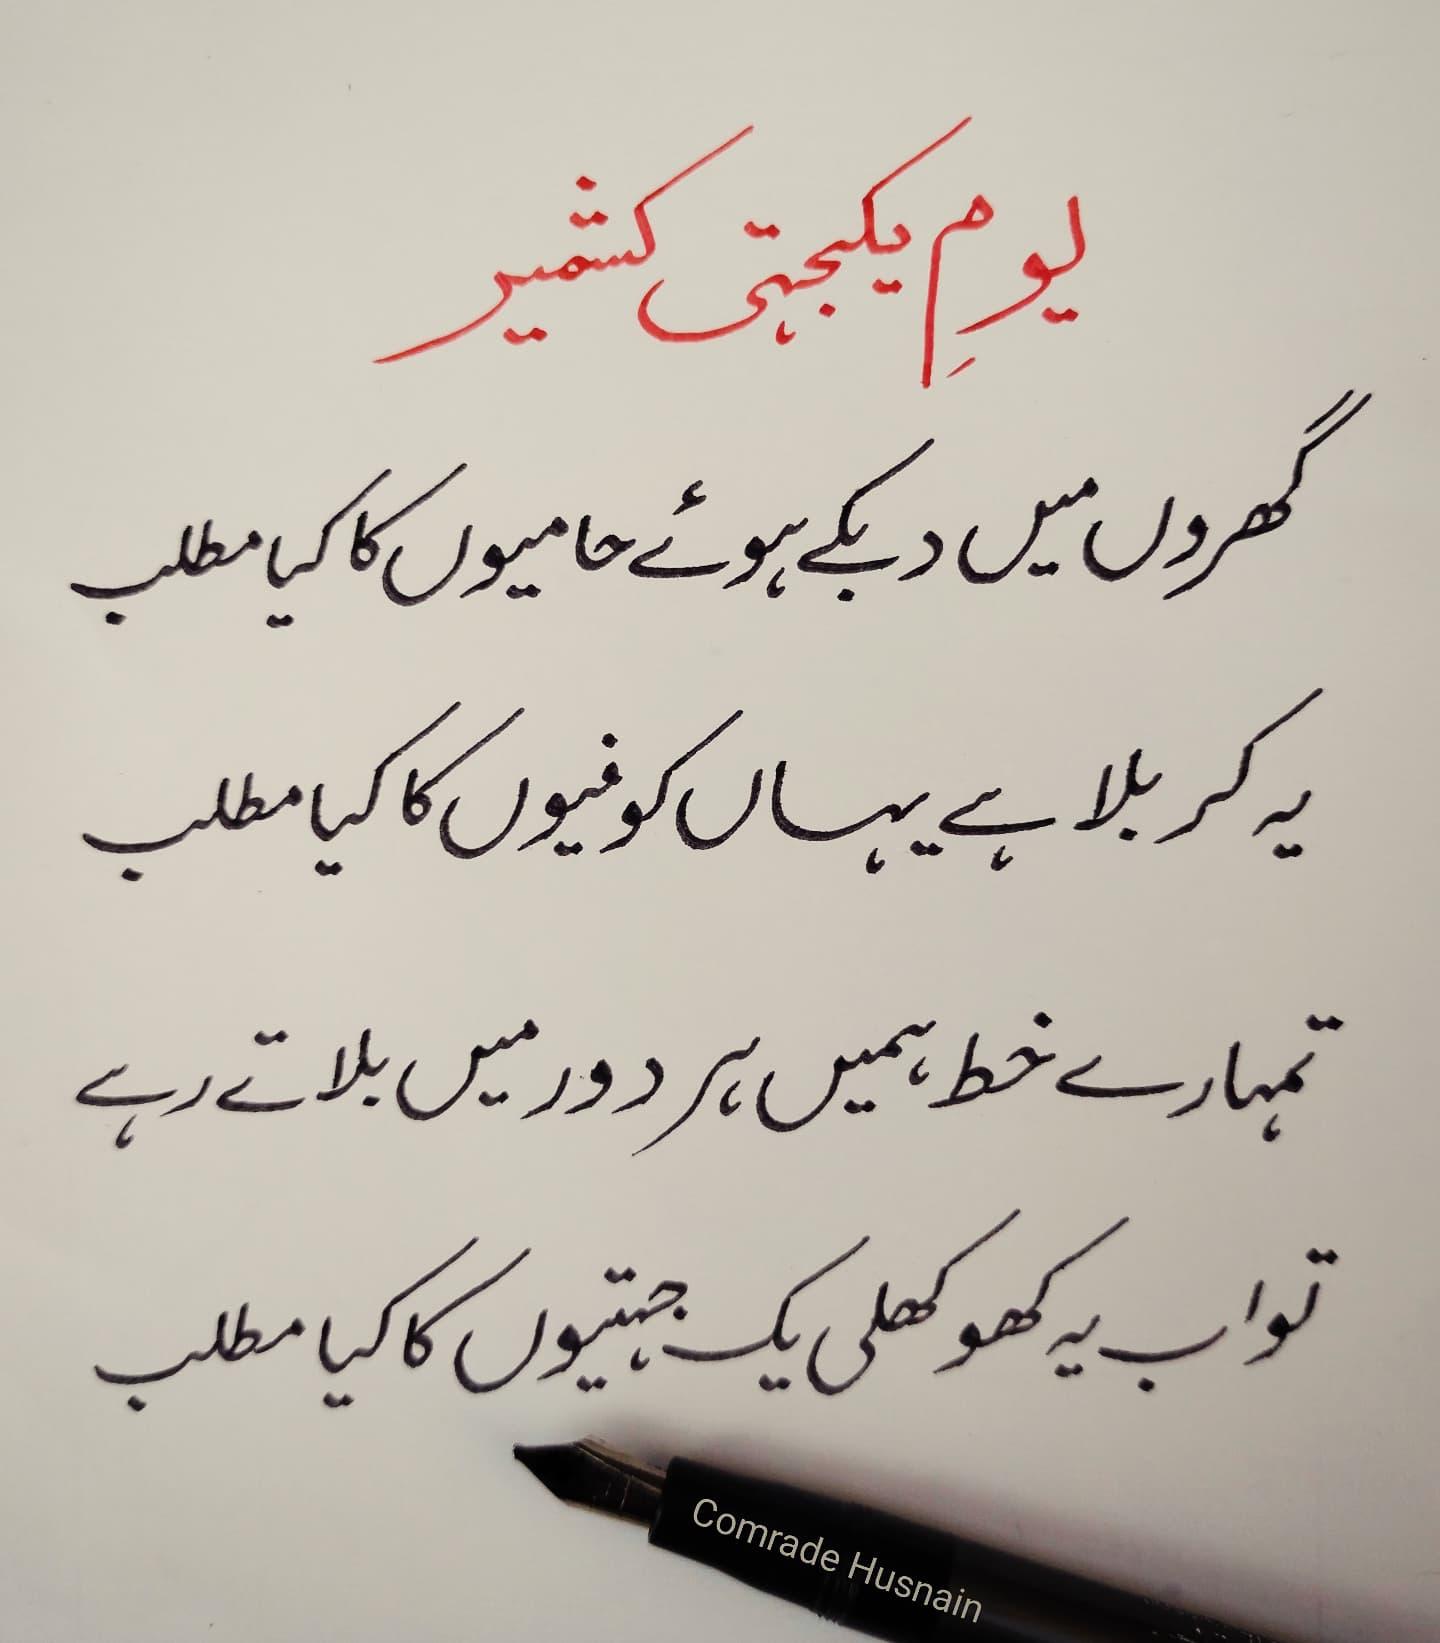 یومِ یکجہتی کشمیر
گھروں میں دبکے ہوئے حامیوں کا کیا مطلب
یہ کربلا ہے یہاں کوفیوں کا کیا مطلب
تمہارے خط ہمیں ہر دور میں بلاتے رہے
تو اب یہ کھوکھلی یک جہتیوں کا کیا مطلب
Comrade Husnain